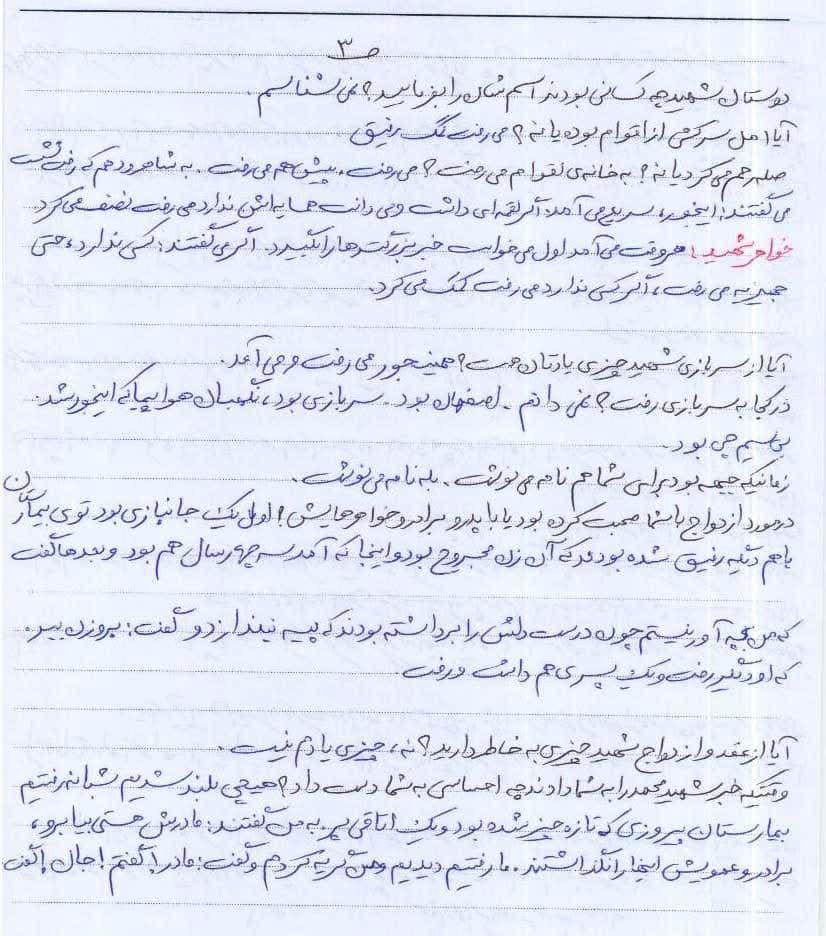 ص ۳
دوستان شهید چه کسانی بودند اسم شان را بفرمایید؟ نمی شناسم.
آیا اهل سرکشی از اقوام بوده یا نه؟ می رفت تک رفیق
صله رحم می کرد یا نه؟ به خانه ی اقوام می رفت؟ می رفت. پیش هم می رفت. به شاهرود هم که رفت گشت
می گفتند: اینجوره، سریع می آمد. اگر لقمه ای داشت و می دانست همسایه اش ندارد می رفت نصف می کرد
خواهر شهید: هروقت می آمد اول می خواست خبر بزرگترها را بگیرد. اگر می گفتند: کسی ندارد، حتی
جهیزیه می رفت، اگر کسی ندارد می رفت کمک می کرد.
آیا از سربازی شهید چیزی یادتان هست؟ همینجور می رفت و می آمد.
در کجا به سربازی رفت؟ نمی دانم. اصفهان بود. سربازی بود، نگهبان هواپیما که اینجور شد.
بی سیم چی بود.
زمانیکه جبهه بود برای شما هم نامه می نوشت. بله نامه می نوشت.
درمورد ازدواج با شما صحبت کرده بود یا با پدر و برادر و خواهرهایش؟ اول یک جانبازی بود توی بیمارستان
با هم دیگه رفیق شده بودند که آن زن مجروح بود و اینجا که آمد سه چهار سال هم بود و بعدها گفت
که من بچه آور نیستم چون درست دلش را برداشته بودند که پیه نیندازد و گفت: برو زن ببر.
که او دیگر رفت و یک پسری هم داشت و رفت
آیا از عقد و ازدواج شهید چیزی به خاطر دارید؟ نه، چیزی یادم نیست.
وقتیکه خبر شهید محمد را به شما دادند چه احساسی به شما دست داد؟ هیچی بلند شدیم شبانه رفتیم
بیمارستان پیروزی که تازه چیز شده بود و یک اتاقی بود به من گفتند: مادرش هستی بیا برو،
برادر و عمویش اینها را نگذاشتند. ما رفتیم دیدیم و من گریه کردم و گفت: مادر! گفتم! جان! گفت